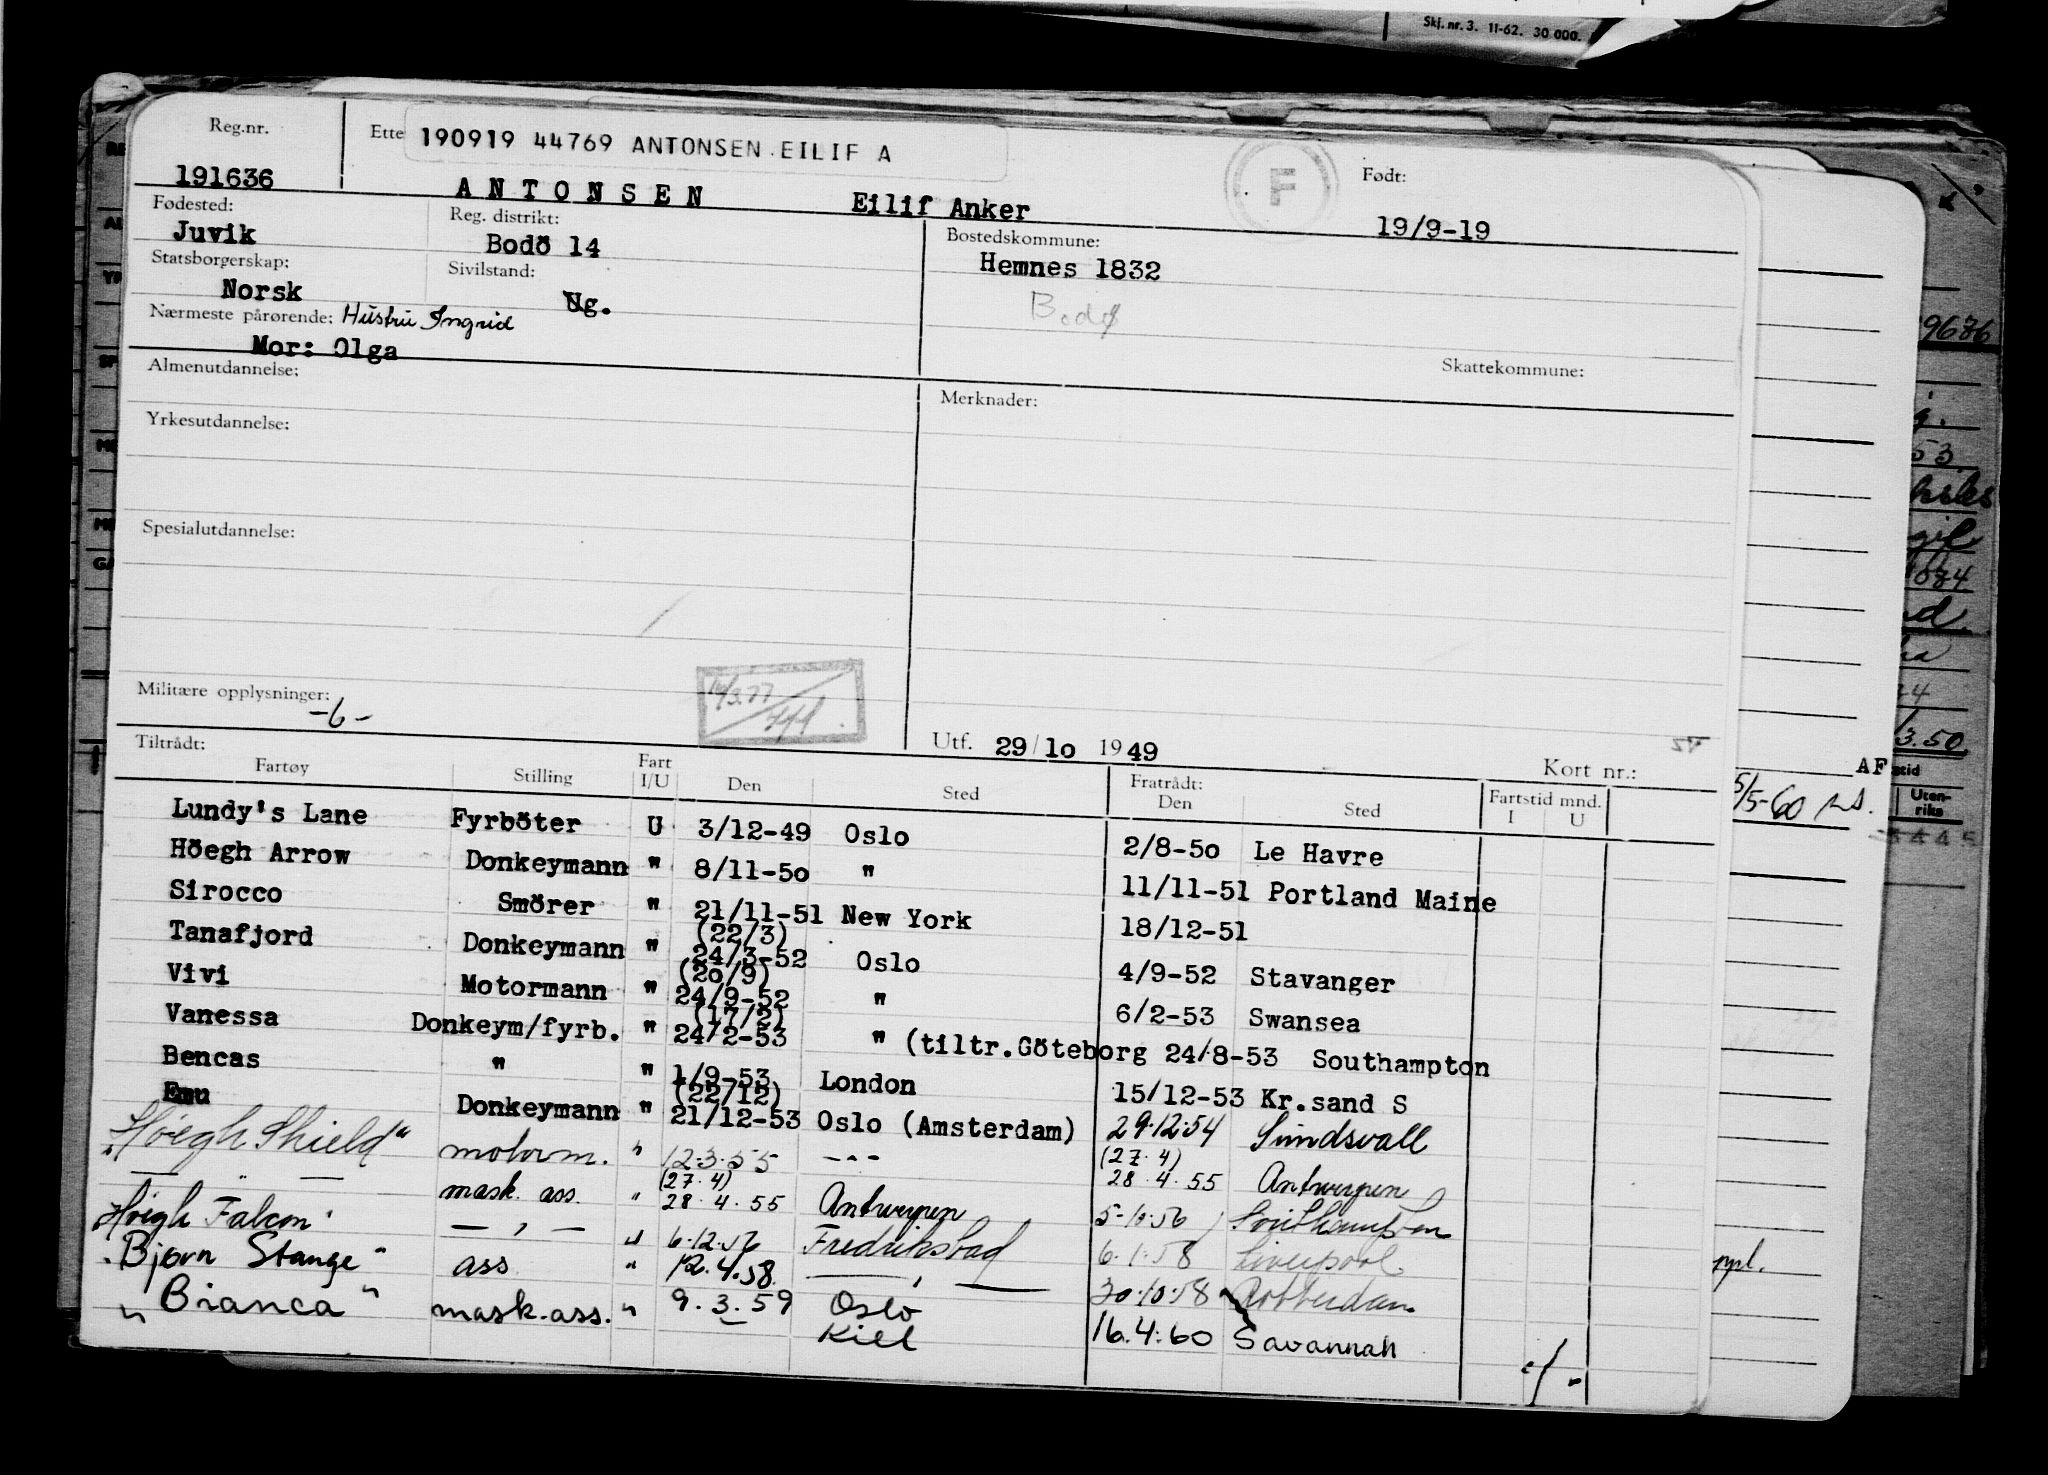 Skj. nr. 3. 11-62. 30 000.
Reg.nr. Ette 190919 44769 ANTONSEN EILIF A F Født:
191636 ANTONSEN Eilif Anker 19/9-19
Fødested: Reg. distrikt: Bostedskommune:
Juvik Bodö 14 Hemnes 1832
Statsborgerskap: Sivilstand: Bodø
Norsk Ug.
Nærmeste pårørende: Hustru Ingrid
Mor: Olga Skattekommune:
Almenutdannelse: Merknader:
Yrkesutdannelse:
Spesialutdannelse:
Militære opplysninger: -6-
Utf. 29/10 1949 Kort nr.:
Tiltrådt: Fratrådt:
Fartøy Stilling Fart I/U Den Sted Den Sted Fartstid mnd. I U
Lundy's Lane Fyrböter U 3/12-49 Oslo 2/8-50 Le Havre
Höegh Arrow Donkeymann " 8/11-5o " 11/11-51 Portland Maine
Sirocco Smörer " 21/11-51 New York 18/12-51
Tanafjord Donkeymann " (22/3) 24/3-52 Oslo 4/9-52 Stavanger
Vivi Motormann " (20/9) 24/9-52 " 6/2-53 Swansea
Vanessa Donkeym/fyrb. " (17/2) 24/2-53 " (tiltr.Göteborg 24/8-53 Southampton
Bencas " " 1/9-53 London 15/12-53 Kr.sand S
Emu Donkeymann " (22/12) 21/12-53 Oslo (Amsterdam) 29.12.54 Sundsvall
"Höegh Shield" motorm. " 12.3.55 --- (27.4) 28.4.55 Antwerpen
— " — mask. ass. " (27.4) 28.4.55 Antwerpen 5-10.56 Southampton
Høigh Falcon — " — " 6.12.56 Fredrikstad 6.1.58 Liverpool
"Bjørn Stange" ass " 12.4.58 — " — 30.10.58 Rotterdam
"Bianca" mask.ass. " 9.3.59 Oslo Kiel 16.4.60 Savannah